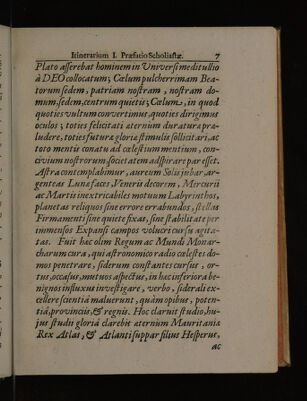 Itinerarium I. Præfatio Scholiastæ. 7
Plato asserebat hominem in Universi meditullio
à DEO collocatum; Cœlum pulcherrimam Bea-
torum sedem, patriam nostram, nostram do-
mum, sedem, centrum quietis; Cœlum, in quod
quoties vultum convertimus, quoties dirigimus
oculos; toties felicitati æternùm duraturæ præ-
ludere, toties futuræ gloriæ stimulis sollicitari, ac
toto mentis conatu ad cælestium mentium, con-
civium nostrorum, societatem adspirare par esset.
Astra contemplabimur, aureum Solis jubar, ar-
genteas Lunæ faces, Veneris decorem, Mercurii
ac Martis inextricabiles motuum Labyrinthos,
planetas reliquos sine errore errabundos, stellas
Firmamenti sine quiete fixas, sine stabilitate per
immensos Expansi campos volucri cursu agita-
tas. Fuit hac olim Regum ac Mundi Monar-
charum cura, qui astronomico radio cælestes do-
mos penetrare, siderum constantes cursus, or-
tus, occasus, mutuos aspectus, in hæc inferiora be-
nignos influxus investigare, verbo, siderali ex-
cellere scientiâ maluerunt, quàm opibus, poten-
tiâ, provinciis, & regnis. Hoc claruit studio, hu-
jus studii gloriâ clarebit æternùm Mauritaniæ
Rex Atlas, & Atlanti suppar filius Hesperus,
ac